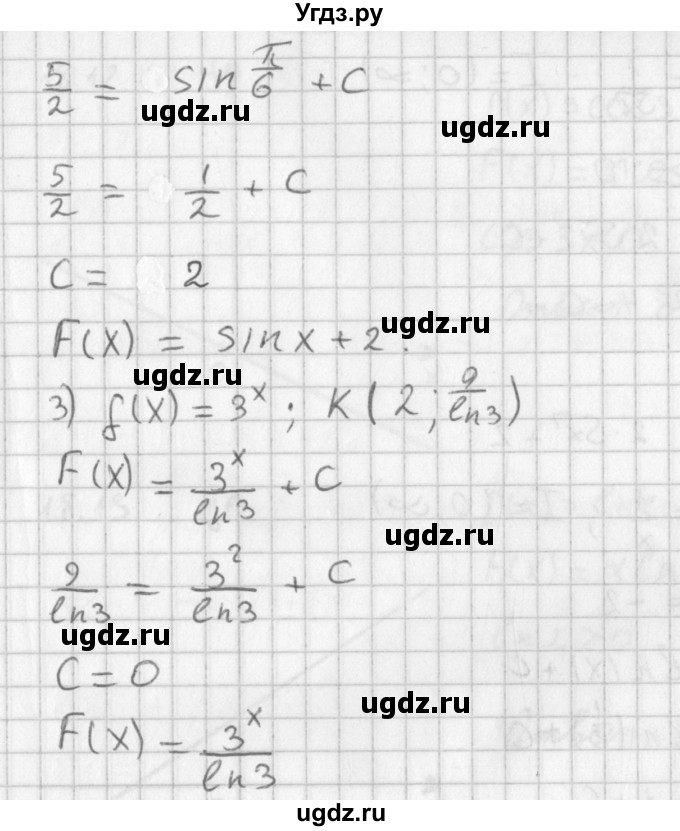 Угдз.ру
5/2 = sin π/6 + C
ugdz.ru
ugdz.ru
5/2 = 1/2 + C
C = 2
ugdz.ru
F(x) = sin x + 2.
ugdz.ru
3) f(x) = 3^x ; K(2; 9/ln3)
F(x) = 3^x/ln3 + C
ugdz.ru
9/ln3 = 3^2/ln3 + C
ugdz.ru
C = 0
ugdz.ru
F(x) = 3^x/ln3
ugdz.ru